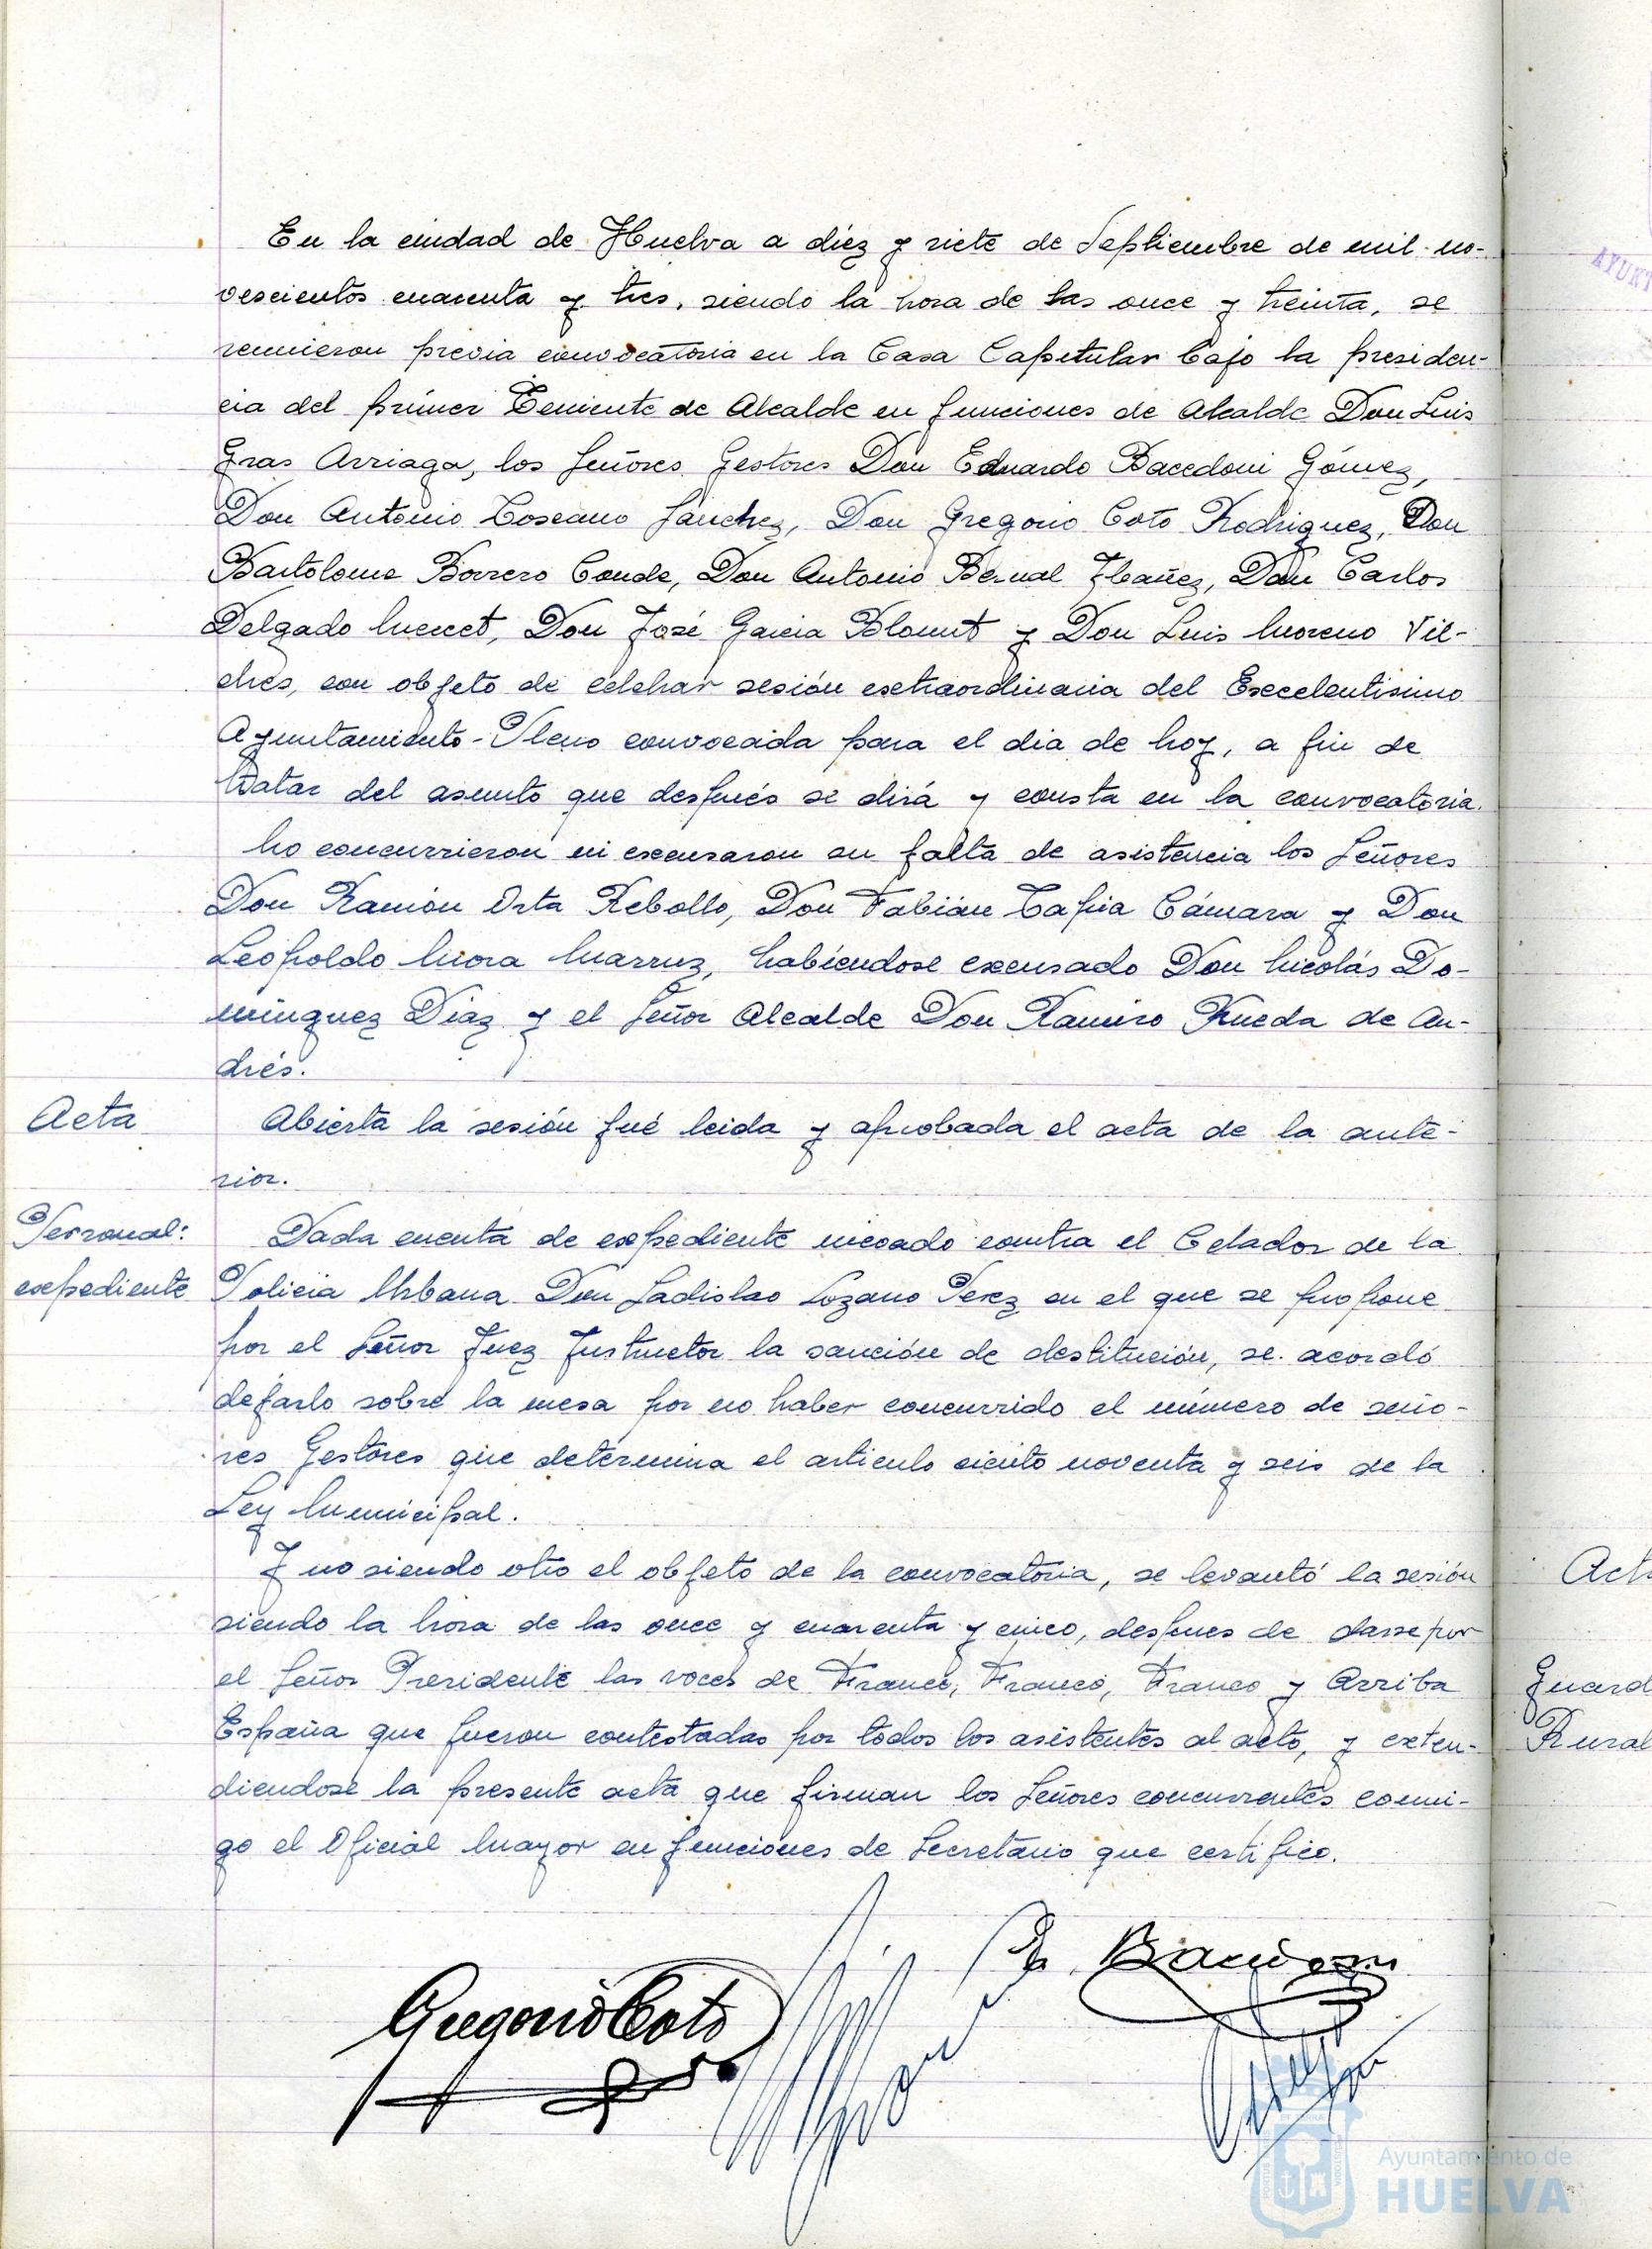 En la ciudad de Huelva a diez y siete de Septiembre de mil no-
vescientos cuarenta y tres, siendo la hora de las once y treinta, se
reunieron previa convocatoria en la Casa Capitular bajo la presiden-
cia del primer Teniente de Alcalde en funciones de Alcalde Don Luis
Gras Arriaga, los Señores Gestores Don Eduardo Bacedoni Gómez,
Don Antonio Toscano Sánchez, Don Gregorio Coto Rodriguez, Don
Bartolome Borrero Conde, Don Antonio Bernal Ibañez, Don Carlos
Delgado, Don José Garcia Blomut y Don Luis Moreno Vil-
ches, con objeto de celebrar sesión extraordinaria del Excelentisimo
Ayuntamiento-Pleno convocada para el dia de hoy, a fin de
tratar del asunto que después se dirá y consta en la convocatoria.
No concurrieron ni excusaron su falta de asistencia los Señores
Don Ramón Orta Rebollo, Don Fabián Tapia Cámara y Don
Leopoldo Mora Marruz, habiéndose excusado Don Nicolás Do-
minguez Diaz y el Señor Alcalde Don Ramiro Rueda de An-
drés.
Acta
Abierta la sesión fué leida y aprobada el acta de la ante-
rior.
Personal:
expediente
Dada cuenta de expediente incoado contra el Celador de la
Policia Urbana Don Ladislao Lozano Perez en el que se propone
por el Señor Juez Instructor la sanción de destitución, se acordó
dejarlo sobre la mesa por no haber concurrido el número de seño-
res Gestores que determina el articulo ciento noventa y seis de la
Ley Municipal.
Y no siendo otro el objeto de la convocatoria, se levantó la sesión
siendo la hora de las once y cuarenta y cinco, despues de darse por
el Señor Presidente las voces de Franco, Franco, Franco y Arriba
España que fueron contestadas por todos los asistentes al acto, y exten-
diendose la presente acta que firman los Señores concurrentes conmi-
go el Oficial Mayor en funciones de Secretario que certifico.
Gregorio Coto
E. Bacedoni
Ayuntamiento de
HUELVA
AYUNT
Act
Guard
Rural